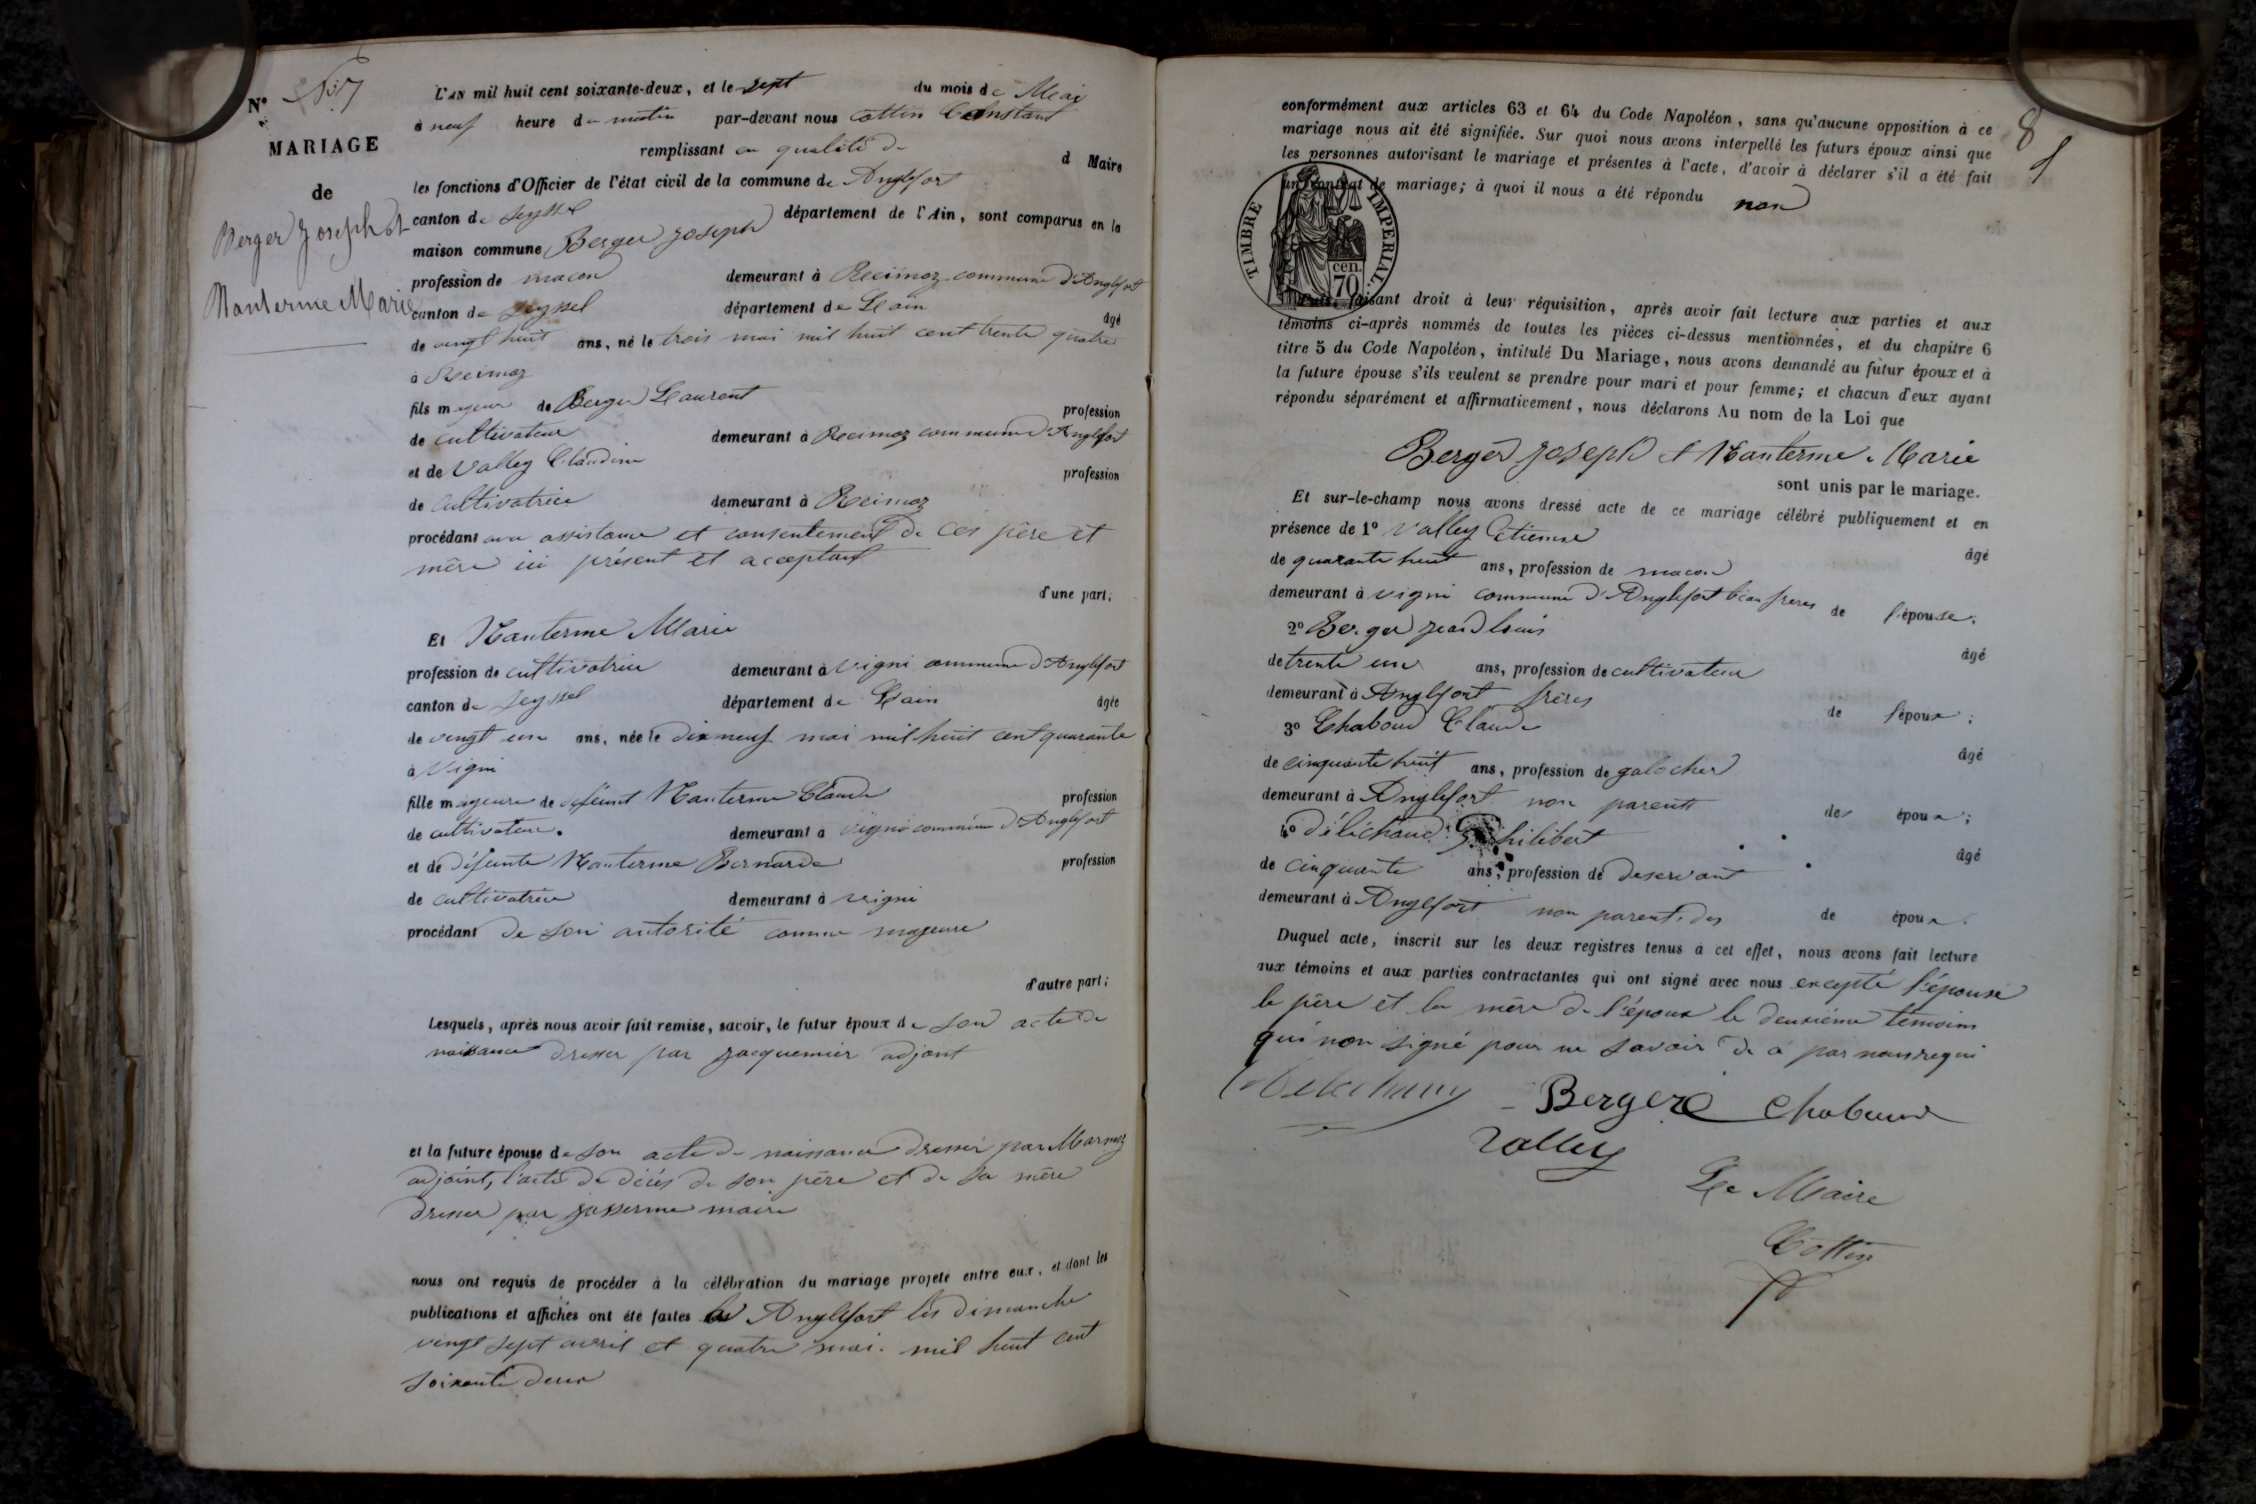 N° 7
MARIAGE
de
Berger Joseph et
Nanterme Marie
L'AN mil huit cent soixante-deux, et le sept du mois de Mai
à neuf heure du matin par-devant nous Cottin Constant
remplissant en qualité de d Maire
les fonctions d'Officier de l'état civil de la commune de Anglefort
canton de Seyssel département de l'Ain, sont comparus en la
maison commune Berger Joseph
profession de macon demeurant à Recimoz commune d'Anglefort
canton de Seyssel département de L'ain âgé
de vingt huit ans, né le trois mai mil huit cent trente quatre
à Recimoz
fils majeur de Berger Laurent profession
de cultivateur demeurant à Recimoz commune d'Anglefort
et de Valley Claudine profession
de cultivatrice demeurant à Recimoz
procédant avec assistance et consentement de ces père et
mère ici présent et acceptant
d'une part;
Et Nanterme Marie
profession de cultivatrice demeurant à Vigni commune d'Anglefort
canton de Seyssel département de L'ain âgée
de vingt un ans, née le dix neuf mai mil huit cent quarante
à Vigni
fille majeure de défunt Nanterme Claude profession
de cultivateur. demeurant à Vigni commune d'Anglefort
et de défunte Nanterme Bernarde profession
de cultivatrice demeurant à Vigni
procédant de son autorité comme majeure
d'autre part;
Lesquels, après nous avoir fait remise, savoir, le futur époux de son acte de
naissance dresser par Jacquemier adjoint
et la future épouse de son acte de naissance dresser par Marmoz
adjoint, l'acte de décés de son père et de sa mère
dresser par Josserme maire
nous ont requis de procéder à la célébration du mariage projeté entre eux, et dont les
publications et affiches ont été faites Anglefort les dimanche
vingt sept avril et quatre mai. mil huit cent
soixante deux
8
conformément aux articles 63 et 64 du Code Napoléon, sans qu'aucune opposition à ce
mariage nous ait été signifiée. Sur quoi nous avons interpellé les futurs époux ainsi que
les personnes autorisant le mariage et présentes à l'acte, d'avoir à déclarer s'il a été fait
un contrat de mariage; à quoi il nous a été répondu non
TIMBRE IMPERIAL.
70 cen.
Puis, faisant droit à leur réquisition, après avoir fait lecture aux parties et aux
témoins ci-après nommés de toutes les pièces ci-dessus mentionnées, et du chapitre 6
titre 5 du Code Napoléon, intitulé Du Mariage, nous avons demandé au futur époux et à
la future épouse s'ils veulent se prendre pour mari et pour femme; et chacun d'eux ayant
répondu séparément et affirmativement, nous déclarons Au nom de la Loi que
Berger Joseph et Nanterme Marie
sont unis par le mariage.
Et sur-le-champ nous avons dressé acte de ce mariage célébré publiquement et en
présence de 1° Valley Etienne âgé
de quarante huit ans, profession de macon
demeurant à Vigni commune d'Anglefort beau freres de l'épouse;
2° Berger Jean Louis âgé
de trente un ans, profession de cultivateur
demeurant à Anglefort frères de l'époux;
3° Chaboud Claude âgé
de cinquante huit ans, profession de galocher
demeurant à Anglefort non parent des époux;
4° Déléchaud Philibert âgé
de cinquante ans, profession de deservant
demeurant à Anglefort non parent des de époux.
Duquel acte, inscrit sur les deux registres tenus à cet effet, nous avons fait lecture
aux témoins et aux parties contractantes qui ont signé avec nous excepté l'épouse
le père et la mère de l'époux le deuxiéme témoins
qui non signé pour ne savoir de a par nous requi
Berger Chaboud
Valley
Le Maire
Cottin